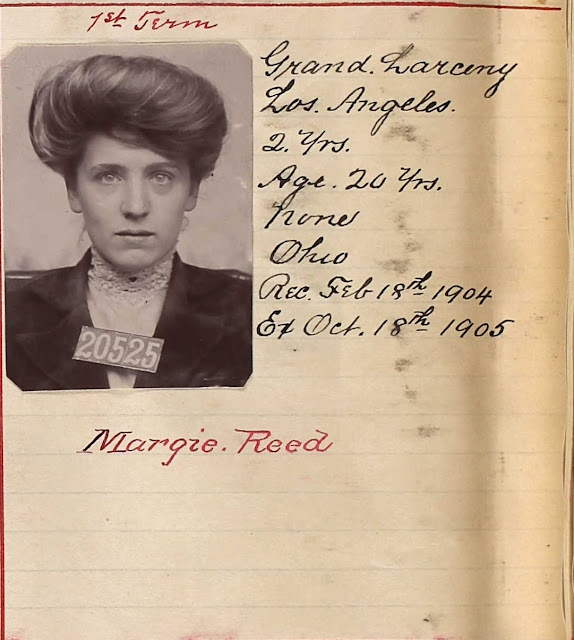 1st Term
Grand. Larceny
Los. Angeles.
2. Yrs.
Age. 20 Yrs.
None
Ohio
Rec. Feb 18th 1904
Ex Oct. 18th 1905
20525
Margie. Reed